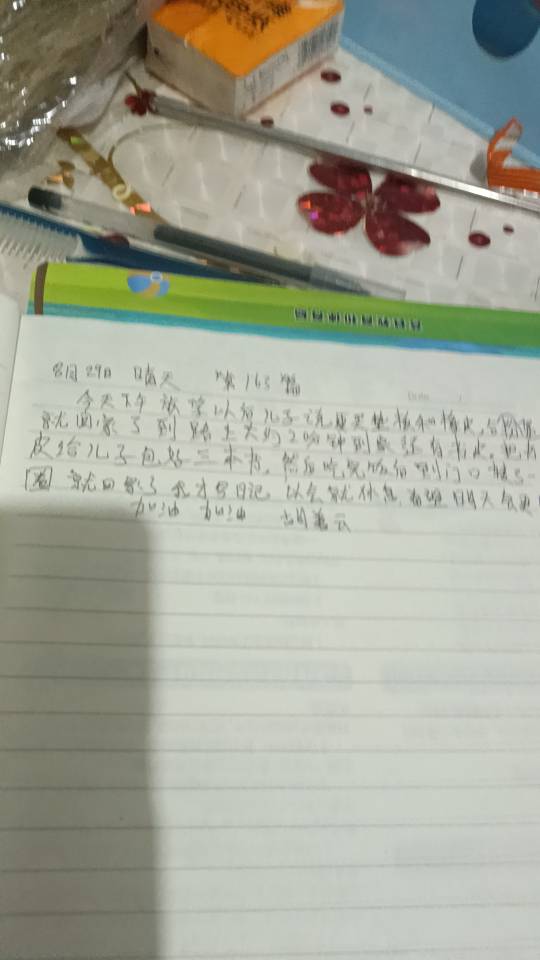 8月29日 晴天 第163篇
今天下午放学以后儿子说要买垫板和橡皮,合
就回家了到路上大约2分钟到家还有书皮,把
皮给儿子包好三本书,然后吃完饭后到门口
圈 就回家了我才写日记 以会就休息,希望明天会更
加油 加油 胡善云